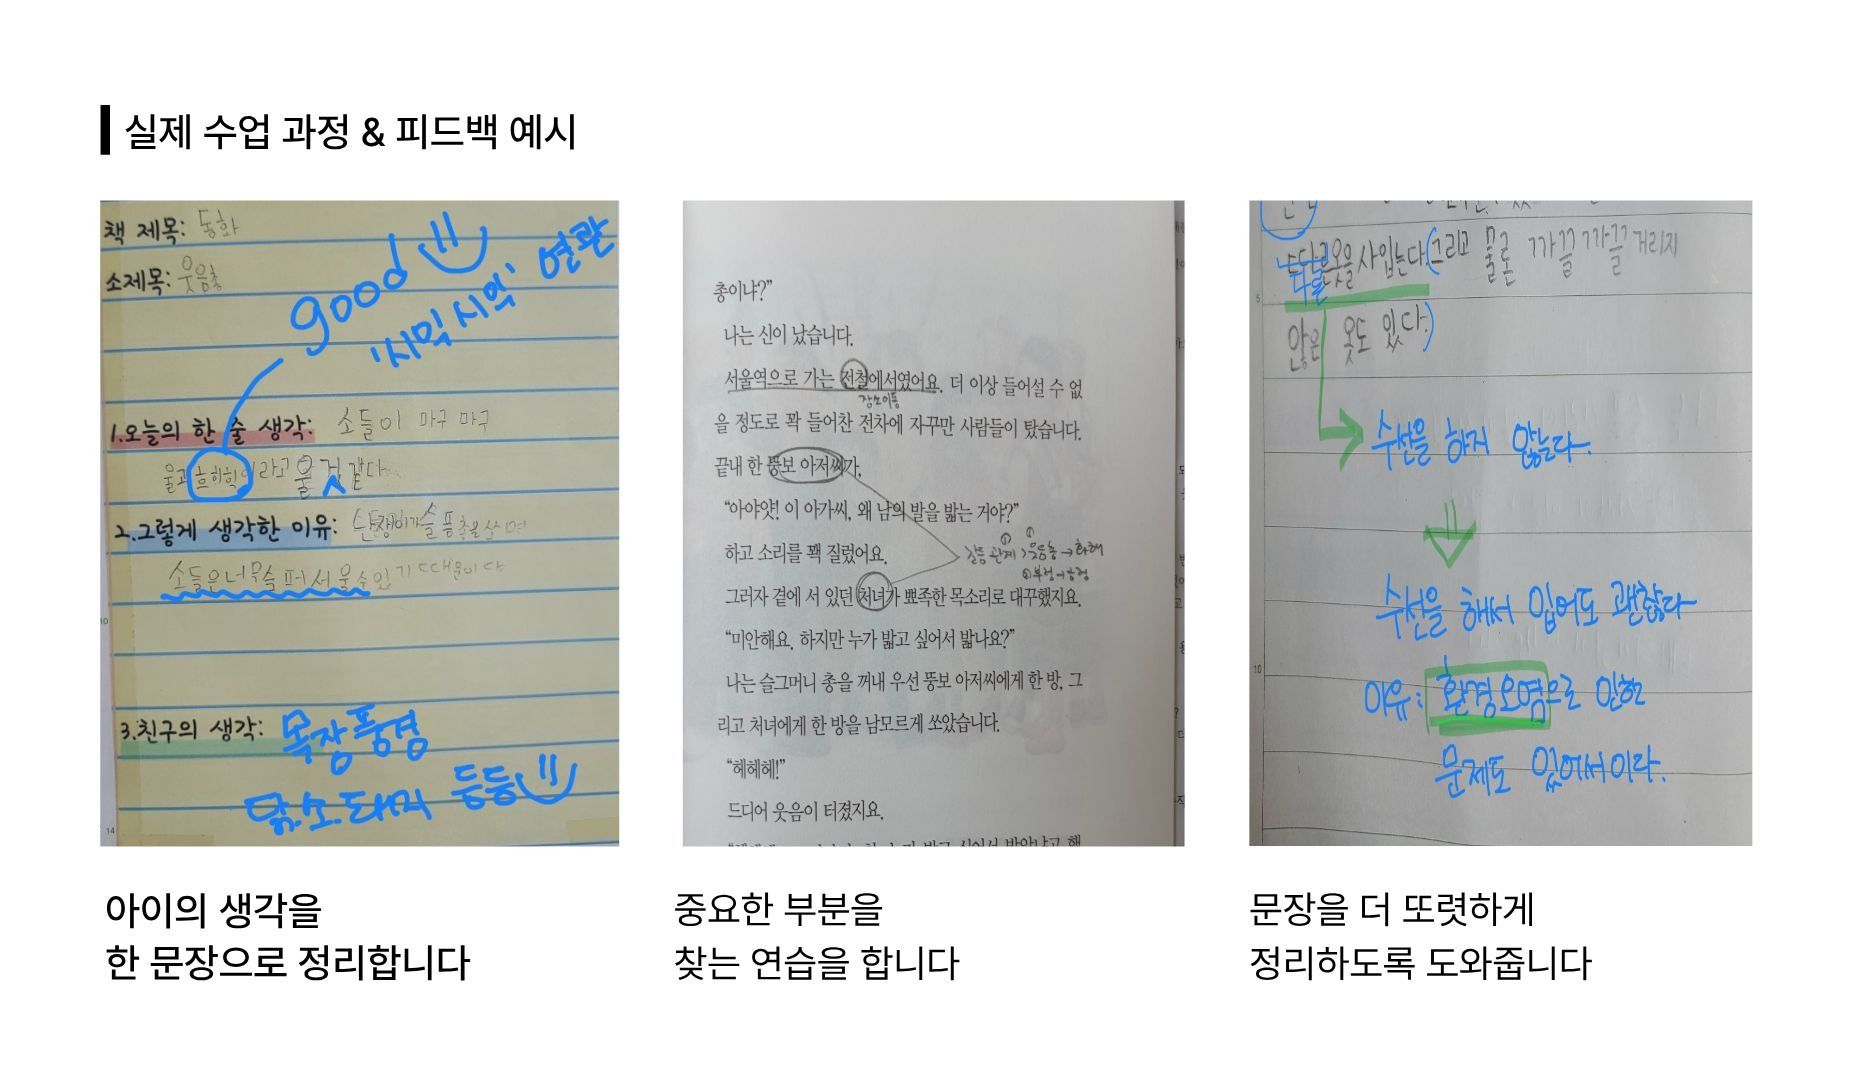 실제 수업 과정 & 피드백 예시
책 제목: 동화
소제목: 웃음총
good
'시믹시의' 연관
1.오늘의 한 줄 생각: 소들이 마구 마구
울고 흐히힉이라고 울 것 같다
2.그렇게 생각한 이유:
소들은 너무 슬퍼서 울 수 있기 때문이다
3.친구의 생각: 목장풍경
닭.소.돼지 등등
총이냐?”
나는 신이 났습니다.
서울역으로 가는 전철에서였어요. 더 이상 들어설 수 없
장소이동
을 정도로 꽉 들어찬 전차에 자꾸만 사람들이 탔습니다.
끝내 한 뚱보 아저씨가,
“아야얏! 이 아가씨, 왜 남의 발을 밟는 거야?”
하고 소리를 꽥 질렀어요.
갈등 관계 > 웃음총 → 화해
① 부정→긍정
그러자 곁에 서 있던 처녀가 뾰족한 목소리로 대꾸했지요.
“미안해요. 하지만 누가 밟고 싶어서 밟나요?”
나는 슬그머니 총을 꺼내 우선 뚱보 아저씨에게 한 방, 그
리고 처녀에게 한 방을 남모르게 쏘았습니다.
“헤헤헤!”
드디어 웃음이 터졌지요.
다른 옷을 사 입는다. (그리고 물론 까끌까끌 거리지
않은 옷도 있다.)
수선을 하지 않는다.
수선을 해서 입어도 괜찮다
이유: 환경오염으로 인한
문제도 있어서이다.
아이의 생각을
한 문장으로 정리합니다
중요한 부분을
찾는 연습을 합니다
문장을 더 또렷하게
정리하도록 도와줍니다